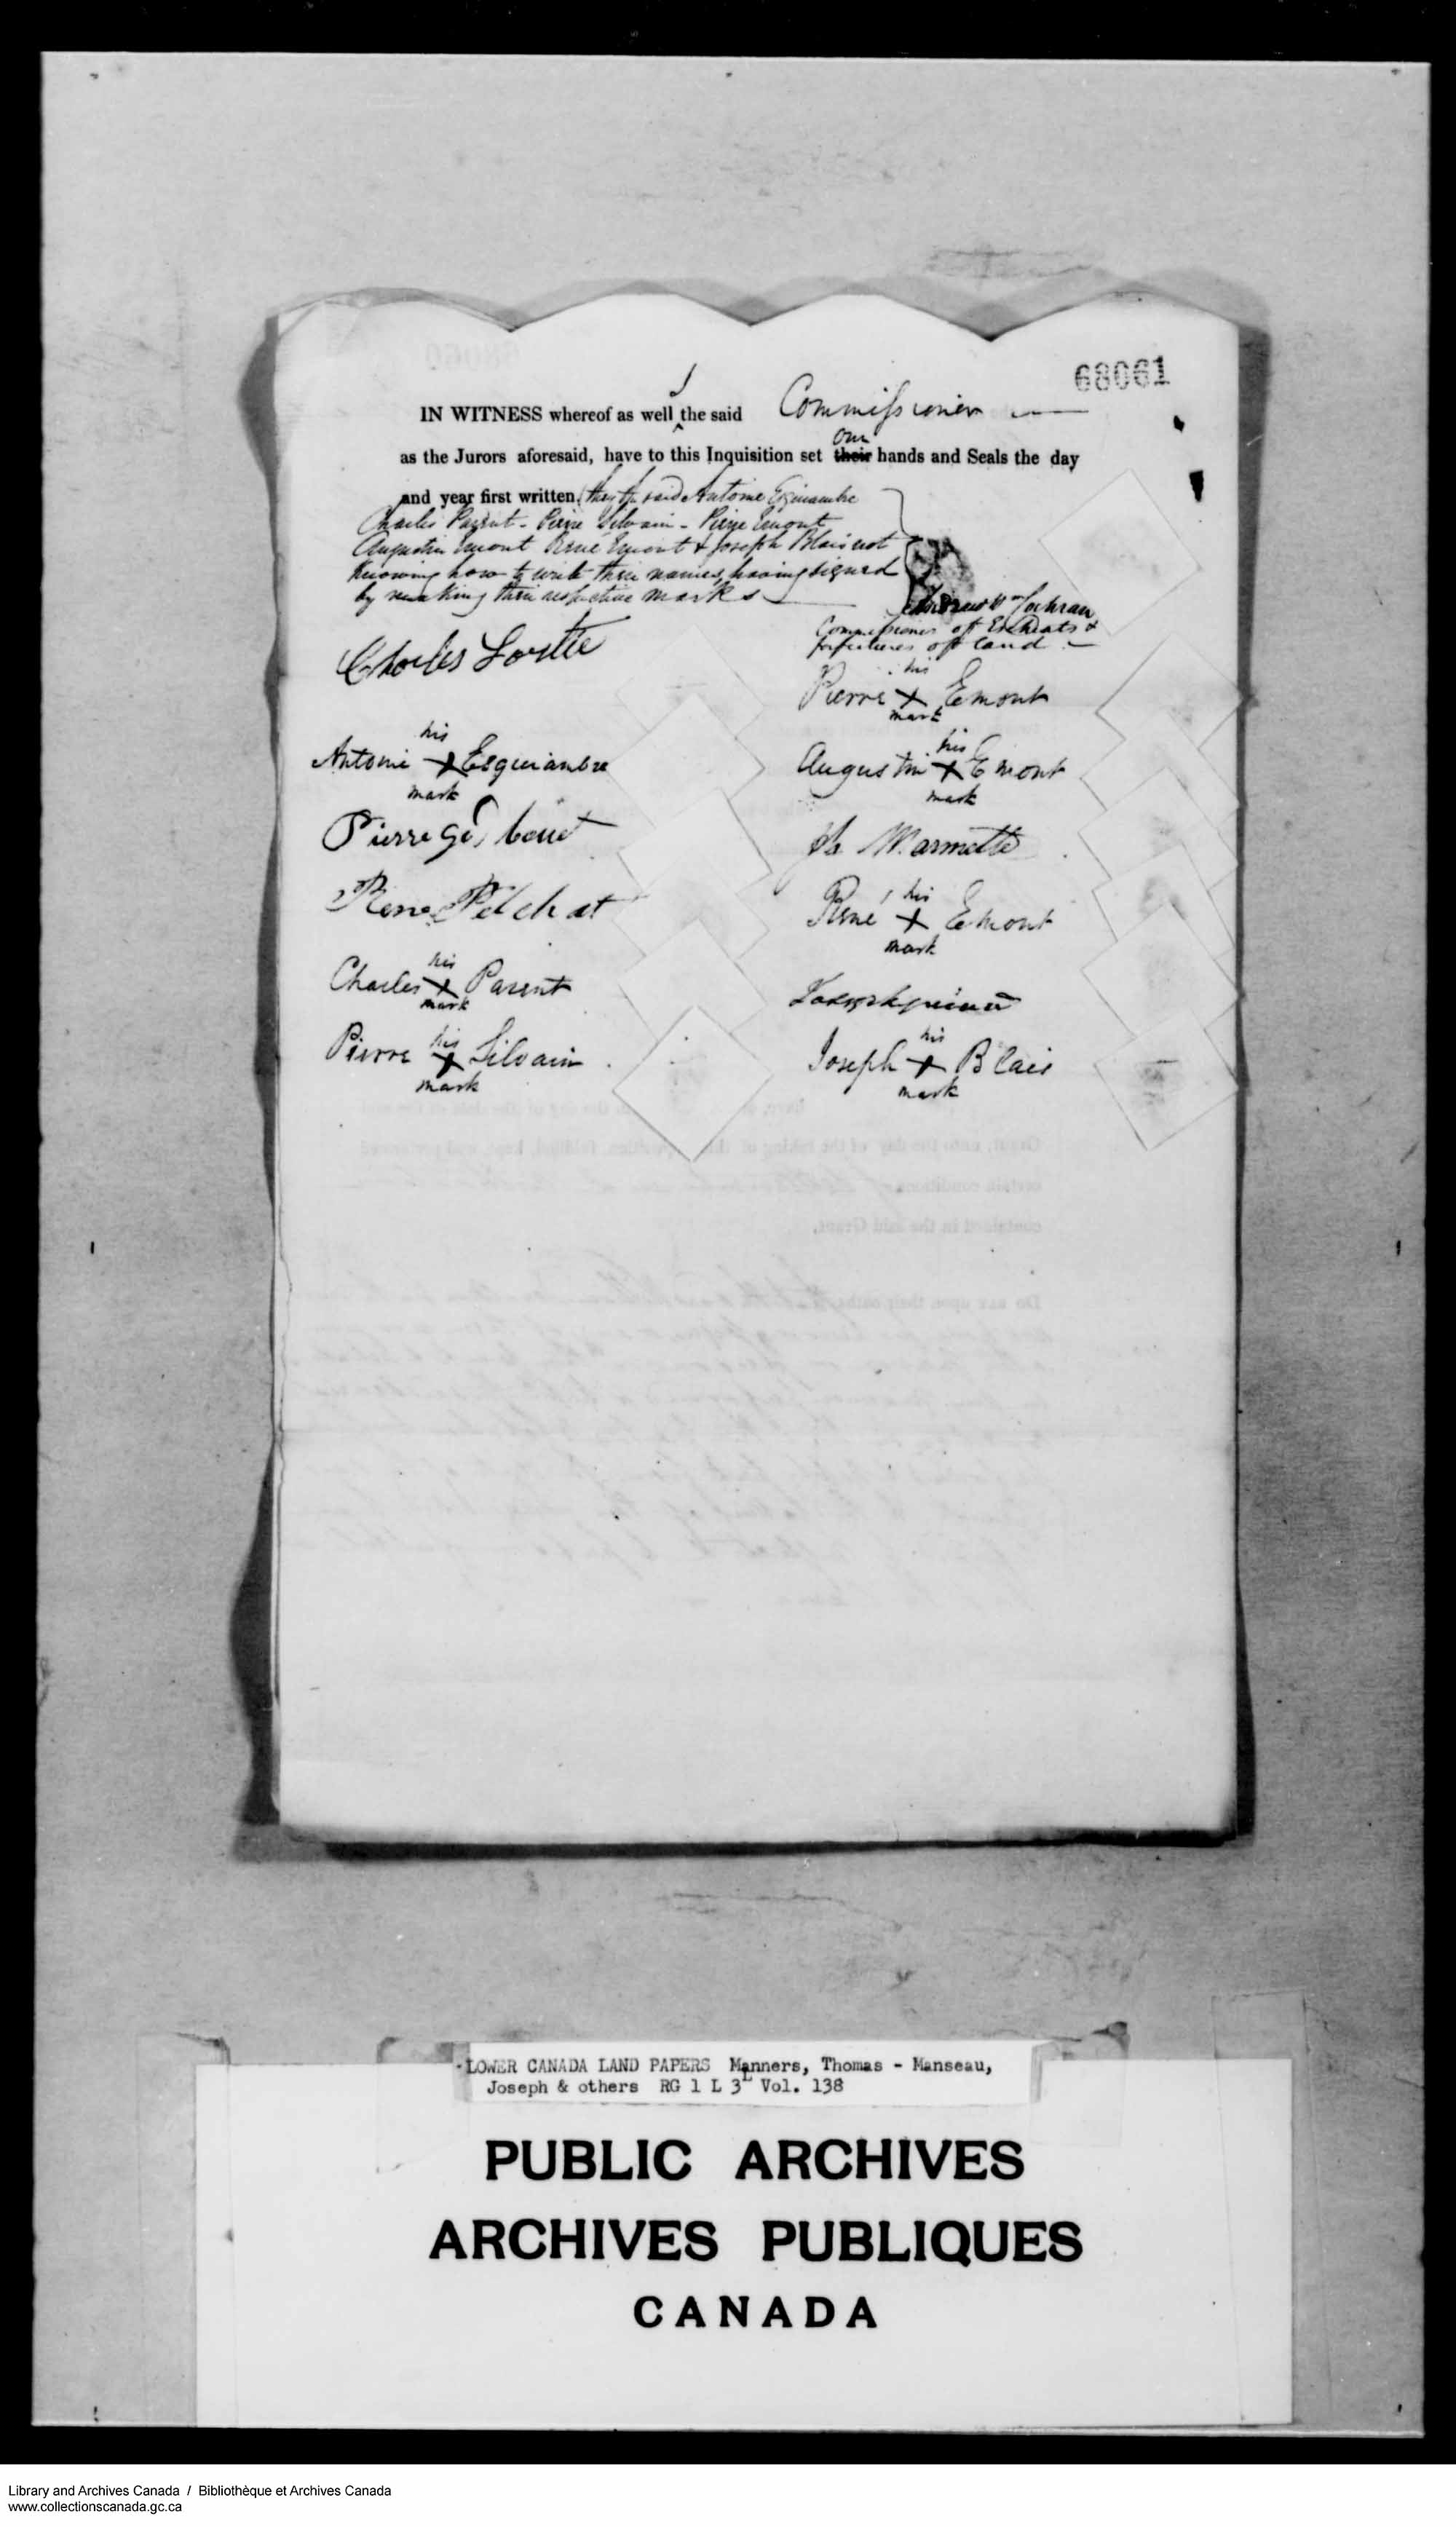 68061
IN WITNESS whereof as well I the said Commissioner
as the Jurors aforesaid, have to this Inquisition set their our hands and Seals the day
and year first written (they the said Antoine Esquiambre
Charles Parent - Pierre Silvain - Pierre Emont
Augustin Emont René Emont & Joseph Blais not
knowing how to write their names, having signed
by making their respective marks
Andrew Wm Cochran
Commissioner of Escheats &
forfeitures of Land
Charles Lortie
his
Pierre X Emont
mark
his
Antoine X Esquiambre
mark
his
Augustin X Emont
mark
Pierre
Marmette
Rene Pelchat
his
René X Emont
mark
his
Charles X Parent
mark
his
Pierre X Silvain
mark
his
Joseph X Blais
mark
LOWER CANADA LAND PAPERS Manners, Thomas - Manseau,
Joseph & others RG 1 L 3L Vol. 138
PUBLIC ARCHIVES
ARCHIVES PUBLIQUES
CANADA
Library and Archives Canada / Bibliothèque et Archives Canada
www.collectionscanada.gc.ca